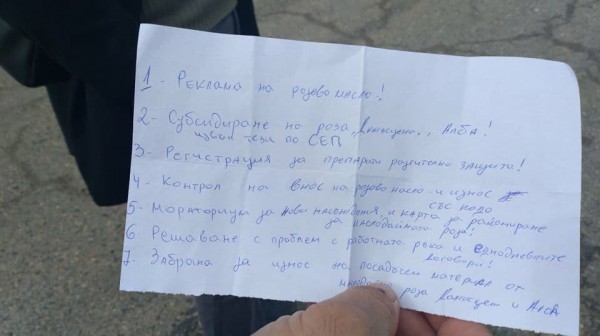 1 - Реклама на розово масло!
2 - Субсидиране на роза, Алба!
извън тези по СЕП
3 - Регистрация за препарати растителна защита!
4 - Контрол на внос на розово масло и износ
със кодо
5 - Мораториум за нови насъждения, и карта за райониране
за маслодайната роза!
6 Решаване с проблем с работната река и еднодневните
договори!
7. Забрана за износ на посадъчен материал от
роза Дамасцен и Алба